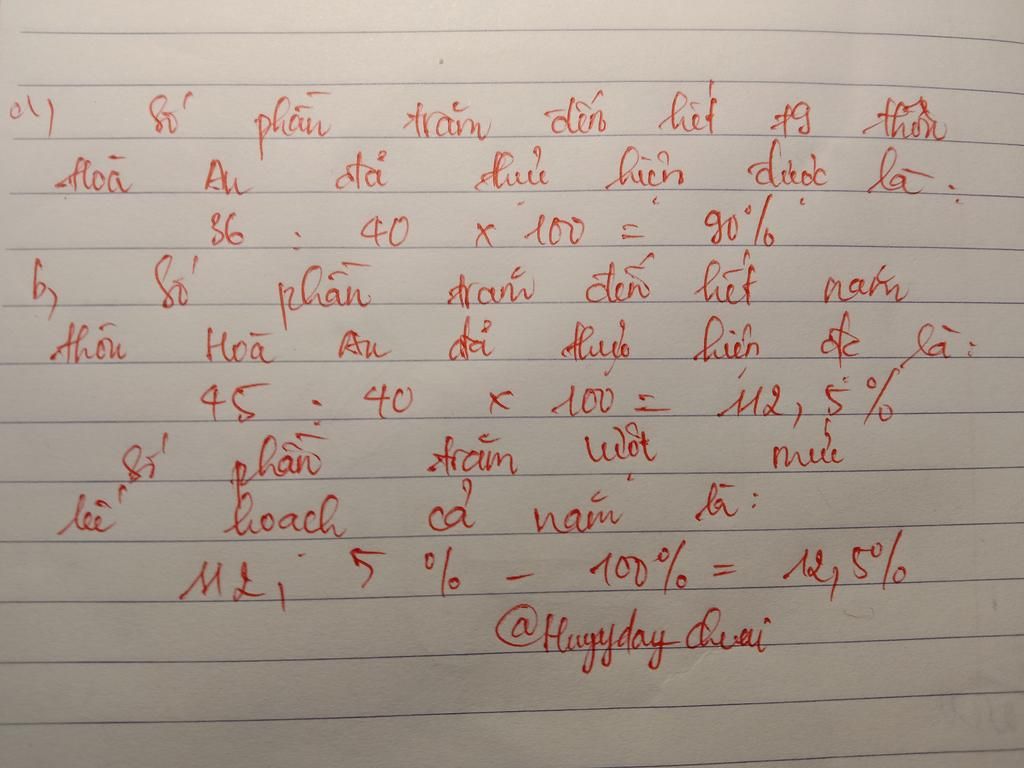 a) Số phần trăm đến hết t9 thôn
Hoà An đã thực hiện được là:
36 : 40 x 100 = 90%
b, Số phần trăm đến hết năm
thôn Hoà An đã thực hiện đc là:
45 : 40 x 100 = 112, 5%
Số phần trăm vượt mức
kế hoạch cả năm là:
112, 5 % - 100% = 12,5%